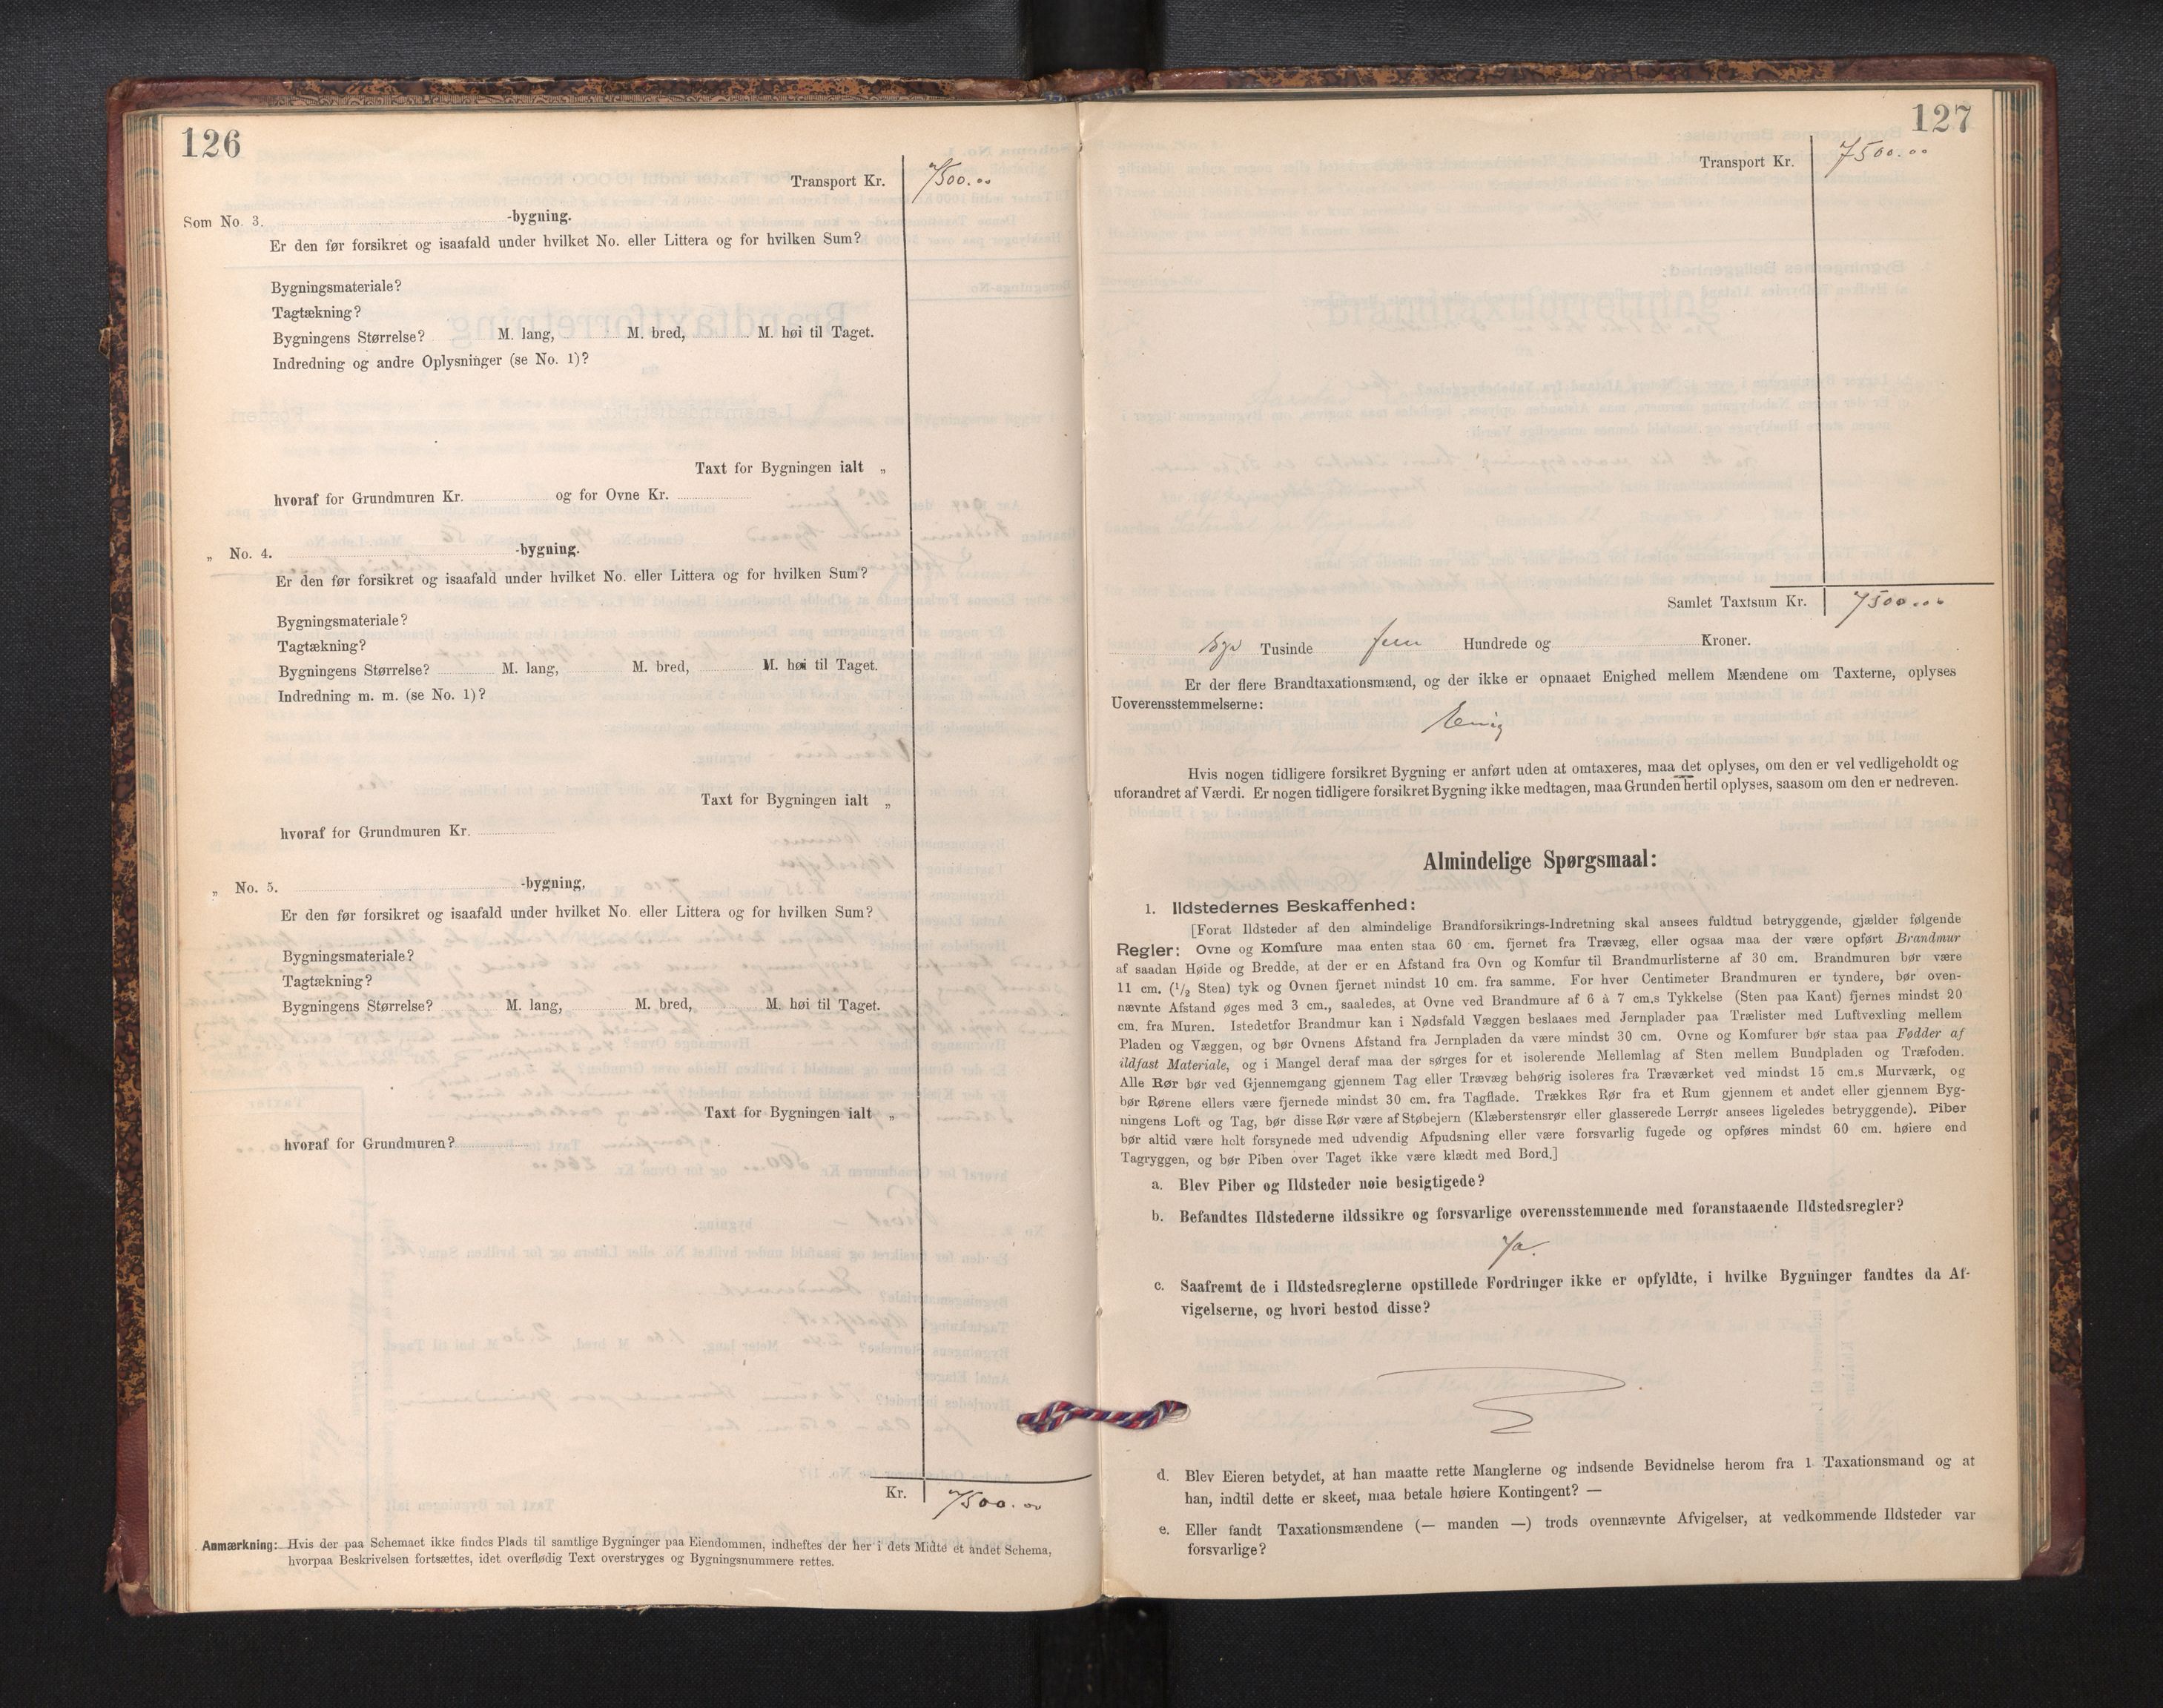 126
Transport Kr. 7500.00
Som No. 3. -bygning.
Er den før forsikret og isaafald under hvilket No. eller Littera og for hvilken Sum?
Bygningsmateriale?
Tagtækning?
Bygningens Størrelse? M. lang, M. bred, M. høi til Taget.
Indredning og andre Oplysninger (se No. 1)?
Taxt for Bygningen ialt „
hvoraf for Grundmuren Kr. og for Ovne Kr.
„ No. 4. -bygning.
Er den før forsikret og isaafald under hvilket No. eller Littera og for hvilken Sum?
Bygningsmateriale?
Tagtækning?
Bygningens Størrelse? M. lang, M. bred, M. høi til Taget.
Indredning m. m. (se No. 1)?
Taxt for Bygningen ialt „
hvoraf for Grundmuren Kr.
„ No. 5. -bygning,
Er den før forsikret og isaafald under hvilket No. eller Littera og for hvilken Sum?
Bygningsmateriale?
Tagtækning?
Bygningens Størrelse? M. lang, M. bred, M. høi til Taget.
Taxt for Bygningen ialt „
hvoraf for Grundmuren?
Kr. 7500.00
Anmærkning: Hvis der paa Schemaet ikke findes Plads til samtlige Bygninger paa Eiendommen, indheftes der her i dets Midte et andet Schema,
hvorpaa Beskrivelsen fortsættes, idet overflødig Text overstryges og Bygningsnummere rettes.
127
Transport Kr. 7500.00
Samlet Taxtsum Kr. 7500.00
Syv Tusinde fem Hundrede og Kroner.
Er der flere Brandtaxationsmænd, og der ikke er opnaaet Enighed mellem Mændene om Taxterne, oplyses
Uoverensstemmelserne:
Enig
Hvis nogen tidligere forsikret Bygning er anført uden at omtaxeres, maa det oplyses, om den er vel vedligeholdt og
uforandret af Værdi. Er nogen tidligere forsikret Bygning ikke medtagen, maa Grunden hertil oplyses, saasom om den er nedreven.
Almindelige Spørgsmaal:
1. Ildstedernes Beskaffenhed:
[Forat Ildsteder af den almindelige Brandforsikrings-Indretning skal ansees fuldtud betryggende, gjælder følgende
Regler: Ovne og Komfure maa enten staa 60 cm. fjernet fra Trævæg, eller ogsaa maa der være opført Brandmur
af saadan Høide og Bredde, at der er en Afstand fra Ovn og Komfur til Brandmurlisterne af 30 cm. Brandmuren bør være
11 cm. (1/2 Sten) tyk og Ovnen fjernet mindst 10 cm. fra samme. For hver Centimeter Brandmuren er tyndere, bør oven-
nævnte Afstand øges med 3 cm., saaledes, at Ovne ved Brandmure af 6 à 7 cm.s Tykkelse (Sten paa Kant) fjernes mindst 20
cm. fra Muren. Istedetfor Brandmur kan i Nødsfald Væggen beslaaes med Jernplader paa Trælister med Luftvexling mellem
Pladen og Væggen, og bør Ovnens Afstand fra Jernpladen da være mindst 30 cm. Ovne og Komfurer bør staa paa Fødder af
ildfast Materiale, og i Mangel deraf maa der sørges for et isolerende Mellemlag af Sten mellem Bundpladen og Træfoden.
Alle Rør bør ved Gjennemgang gjennem Tag eller Trævæg behørig isoleres fra Træværket ved mindst 15 cm.s Murværk, og
bør Rørene ellers være fjernede mindst 30 cm. fra Tagflade. Trækkes Rør fra et Rum gjennem et andet eller gjennem Byg-
ningens Loft og Tag, bør disse Rør være af Støbejern (Klæberstensrør eller glasserede Lerrør ansees ligeledes betryggende). Piber
bør altid være helt forsynede med udvendig Afpudsning eller være forsvarlig fugede og opføres mindst 60 cm. høiere end
Tagryggen, og bør Piben over Taget ikke være klædt med Bord.]
a. Blev Piber og Ildsteder nøie besigtigede?
b. Befandtes Ildstederne ildssikre og forsvarlige overensstemmende med foranstaaende Ildstedsregler?
Ja.
c. Saafremt de i Ildstedsreglerne opstillede Fordringer ikke er opfyldte, i hvilke Bygninger fandtes da Af-
vigelserne, og hvori bestod disse?
d. Blev Eieren betydet, at han maatte rette Manglerne og indsende Bevidnelse herom fra 1 Taxationsmand og at
han, indtil dette er skeet, maa betale høiere Kontingent? —
e. Eller fandt Taxationsmændene (— manden —) trods ovennævnte Afvigelser, at vedkommende Ildsteder var
forsvarlige?